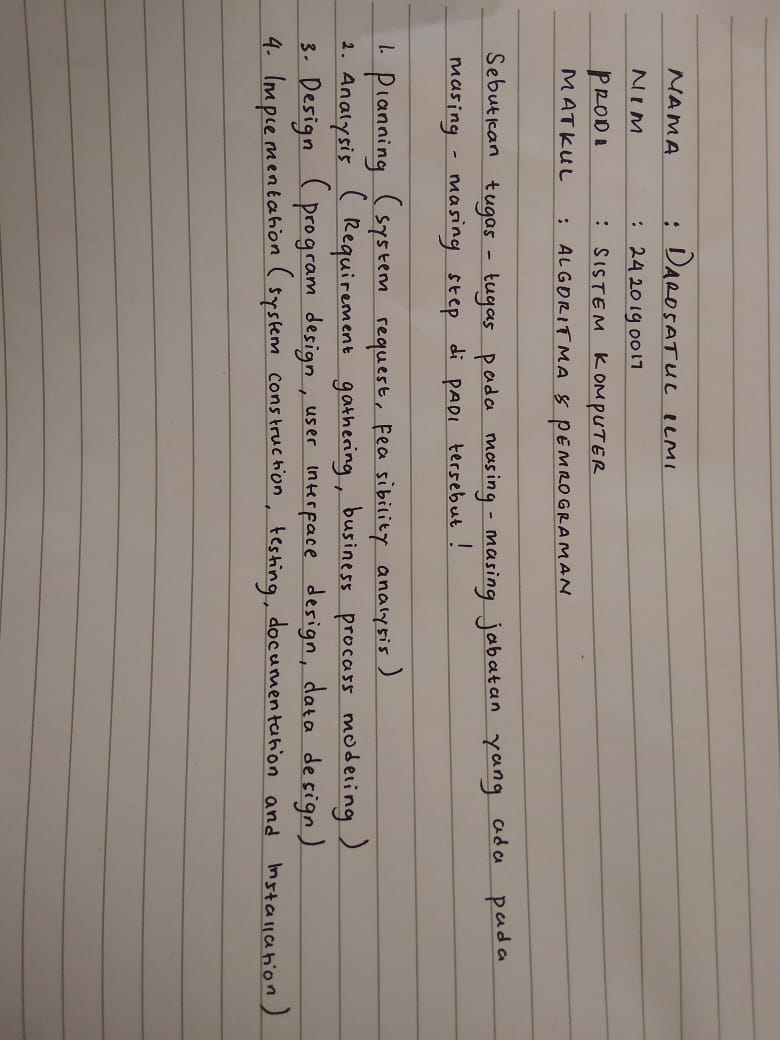 NAMA : DAROSATUL ILMI
NIM : 242019 0017
PRODI : SISTEM KOMPUTER
MATKUL : ALGORITMA & PEMROGRAMAN
Sebutkan tugas - tugas pada masing - masing jabatan yang ada pada
masing - masing step di PADI tersebut !
1. Planning (system request, Feasibility analysis)
2. Analysis (Requirement gathering, business procass modeling)
3. Design (program design, user interface design, data design)
4. Implementation (system construction, testing, documentation and Installation)